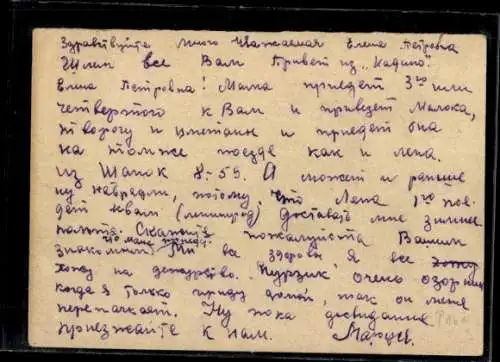 Здравствуйте много уважаемая Елена Петровна
Шлем все Вам привет из "Кадино".
Елена Петровна! Мама приедет 3го или
четвертого к Вам и привезет молока,
творогу и сметаны и приедет она
на том же поезде как и лена.
из Шапок 8-59. А может и раньше
ну наврядли, потому. что Лена 1го пое-
дет к вам (ленинград) доставать мне зимнее
пальто. Скажите пожалуйста Вашим
знакомым что мама приедет. Мы все здоровы. Я все хожу
хожу на дежурство. Мурзик очень озорник
когда я только приду домой, так он меня
перепачкает. Ну пока досвидание
приезжайте к нам. Маруся.